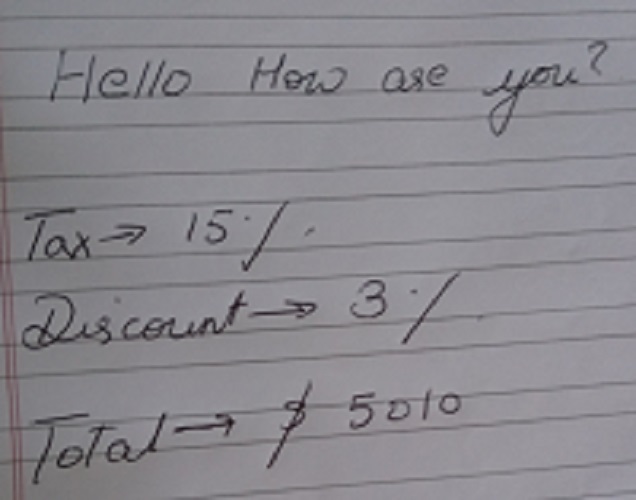 Hello How are you?
Tax → 15%.
Discount → 3%
Total → $ 5010